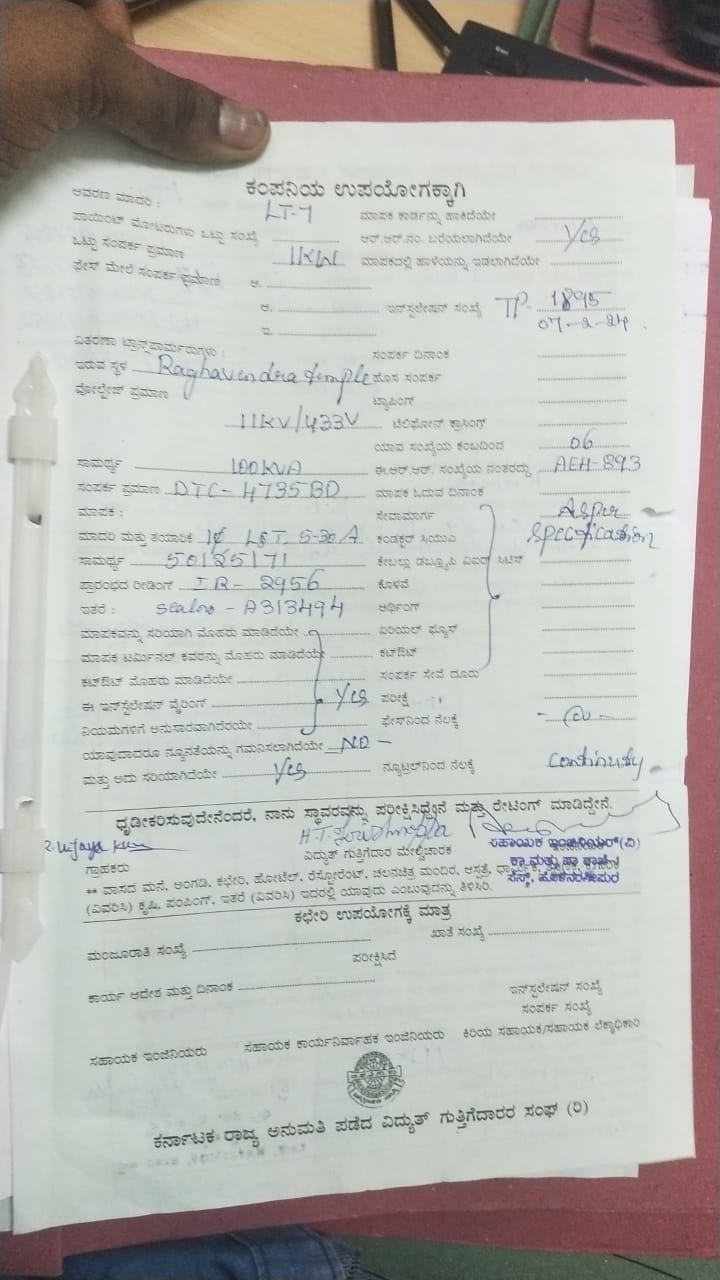 ಕಂಪನಿಯ ಉಪಯೋಗಕ್ಕಾಗಿ
ಆವರಣ ಮಾದರಿ : LT-7 ಮಾಪಕ ಕಾರ್ಡನ್ನು ಹಾಕಿದೆಯೇ
ಪಾಯಿಂಟ್ ಮೋಟರುಗಳು ಒಟ್ಟು ಸಂಖ್ಯೆ ಆರ್.ಆರ್.ನಂ. ಬರೆಯಲಾಗಿದೆಯೇ Yes
ಒಟ್ಟು ಸಂಪರ್ಕ ಪ್ರಮಾಣ 11KW ಮಾಪಕದಲ್ಲಿ ಹಾಳೆಯನ್ನು ಇಡಲಾಗಿದೆಯೇ
ಫೇಸ್ ಮೇಲೆ ಸಂಪರ್ಕ ಪ್ರಮಾಣ ಅ.
ಆ. ಇನ್ಸ್ಟಲೇಷನ್ ಸಂಖ್ಯೆ TP- 1895
ಇ. 07-2-24.
ವಿತರಣಾ ಟ್ರಾನ್ಸ್‌ಫಾರ್ಮರುಗಳು : ಸಂಪರ್ಕ ದಿನಾಂಕ
ಇರುವ ಸ್ಥಳ Raghavendra temple ಹೊಸ ಸಂಪರ್ಕ
ವೋಲ್ಟೇಜ್ ಪ್ರಮಾಣ ಟ್ಯಾಪಿಂಗ್
11KV/433V ಟೆಲಿಫೋನ್ ಕ್ರಾಸಿಂಗ್
ಯಾವ ಸಂಖ್ಯೆಯ ಕಂಬದಿಂದ 06
ಸಾಮರ್ಥ್ಯ 100KVA ಈ.ಆರ್.ಆರ್. ಸಂಖ್ಯೆಯ ನಂತರದ್ದು AEH-893
ಸಂಪರ್ಕ ಪ್ರಮಾಣ DTC-4735BD ಮಾಪಕ ಓದುವ ದಿನಾಂಕ
ಮಾಪಕ : ಸೇವಾಮಾರ್ಗ As per
ಮಾದರಿ ಮತ್ತು ತಯಾರಿಕೆ 1φ L&T. 5-30A ಕಂಡಕ್ಟರ್ ಸಿಯುವಿ Specification
ಸಾಮರ್ಥ್ಯ 50125171 ಕೇಬಲ್ಲು ಡಬ್ಲ್ಯೂಪಿ ವಿಐರ್ ಸಿಟಿಸ್
ಪ್ರಾರಂಭದ ರೀಡಿಂಗ್ IR-2956 ಕೊಳವೆ
ಇತರೆ : A313494 ಆರ್ಥಿಂಗ್
ಮಾಪಕವನ್ನು ಸರಿಯಾಗಿ ಮೊಹರು ಮಾಡಿದೆಯೇ ಏರಿಯಲ್ ಫ್ಯೂಸ್
ಮಾಪಕ ಟರ್ಮಿನಲ್ ಕವರನ್ನು ಮೊಹರು ಮಾಡಿದೆಯೇ ಕಟ್‌ಔಟ್
ಕಟ್‌ಔಟ್ ಮೊಹರು ಮಾಡಿದೆಯೇ ಸಂಪರ್ಕ ಸೇವೆ ದೂರು
ಈ ಇನ್ಸ್ಟಲೇಷನ್ ವೈರಿಂಗ್ Yes ಪರೀಕ್ಷೆ
ನಿಯಮಗಳಿಗೆ ಅನುಸಾರವಾಗಿದೆರಯೇ ಫೇಸ್‌ನಿಂದ ನೆಲಕ್ಕೆ
ಯಾವುದಾದರೂ ನ್ಯೂನತೆಯನ್ನು ಗಮನಿಸಲಾಗಿದೆಯೇ NO -
ಮತ್ತು ಅದು ಸರಿಯಾಗಿದೆಯೇ Yes ನ್ಯೂಟ್ರಲ್‌ನಿಂದ ನೆಲಕ್ಕೆ Continuty
ಧೃಡೀಕರಿಸುವುದೇನೆಂದರೆ, ನಾನು ಸ್ಥಾವರವನ್ನು ಪರೀಕ್ಷಿಸಿದ್ದೇನೆ ಮತ್ತು ರೇಟಿಂಗ್ ಮಾಡಿದ್ದೇನೆ.
ಸಹಾಯಕ ಇಂಜಿನಿಯರ್(ವಿ)
ಗ್ರಾಹಕರು ವಿದ್ಯುತ್ ಗುತ್ತಿಗೆದಾರ ಮೇಲ್ವಿಚಾರಕ
** ವಾಸದ ಮನೆ, ಅಂಗಡಿ, ಕಛೇರಿ, ಹೋಟೆಲ್, ರೆಸ್ಟೋರೆಂಟ್, ಚಲನಚಿತ್ರ ಮಂದಿರ, ಆಸ್ಪತ್ರೆ,
(ವಿವರಿಸಿ) ಕೃಷಿ, ಪಂಪಿಂಗ್, ಇತರೆ (ವಿವರಿಸಿ) ಇದರಲ್ಲಿ ಯಾವುದು ಎಂಬುವುದನ್ನು ತಿಳಿಸಿರಿ.
ಕಛೇರಿ ಉಪಯೋಗಕ್ಕೆ ಮಾತ್ರ
ಮಂಜೂರಾತಿ ಸಂಖ್ಯೆ ಖಾತೆ ಸಂಖ್ಯೆ
ಪರೀಕ್ಷಿಸಿದೆ
ಕಾರ್ಯ ಆದೇಶ ಮತ್ತು ದಿನಾಂಕ ಇನ್ಸ್ಟಲೇಷನ್ ಸಂಖ್ಯೆ
ಸಂಪರ್ಕ ಸಂಖ್ಯೆ
ಸಹಾಯಕ ಇಂಜಿನಿಯರು ಸಹಾಯಕ ಕಾರ್ಯನಿರ್ವಾಹಕ ಇಂಜಿನಿಯರು ಕಿರಿಯ ಸಹಾಯಕ/ಸಹಾಯಕ ಲೆಕ್ಕಾಧಿಕಾರಿ
ಕರ್ನಾಟಕ ರಾಜ್ಯ ಅನುಮತಿ ಪಡೆದ ವಿದ್ಯುತ್ ಗುತ್ತಿಗೆದಾರರ ಸಂಘ (ರಿ)